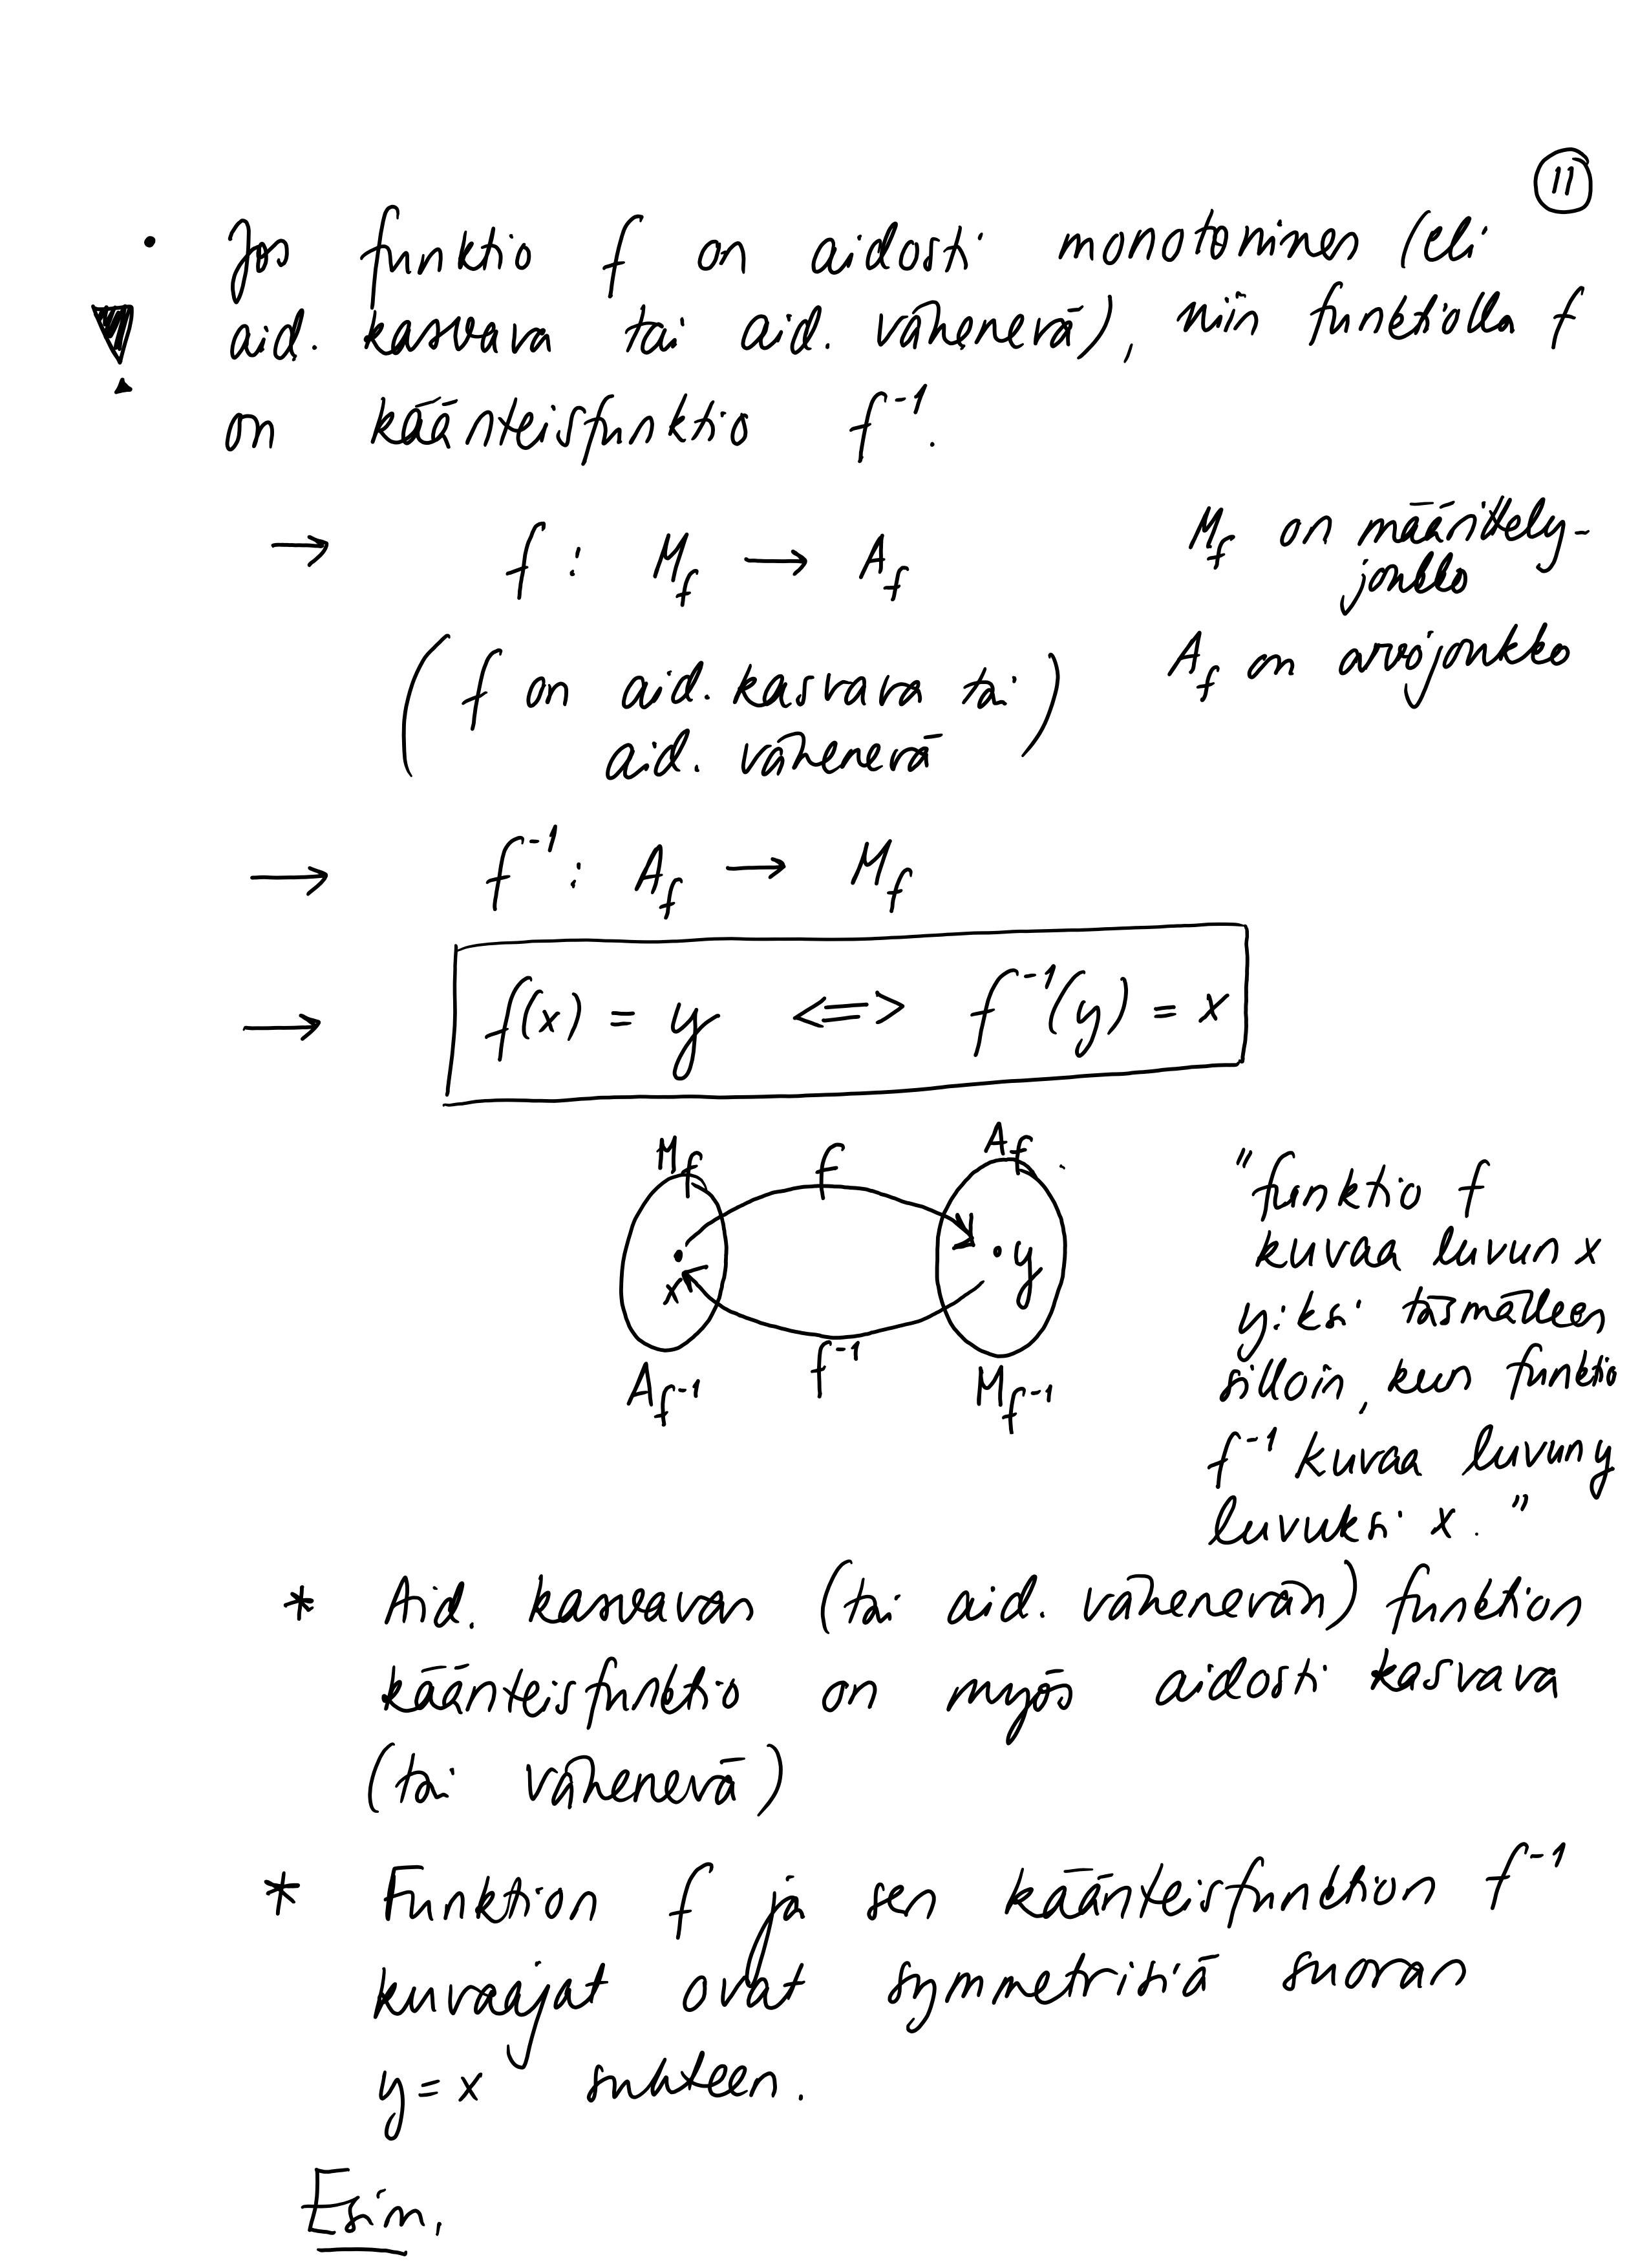 11
• Jos funktio f on aidosti monotoninen (eli
aid. kasvava tai aid. vähenevä), niin funktiolla f
on käänteisfunktio f⁻¹.
→ f : M_f → A_f
M_f on määrittely-
joukko
A_f on arvojoukko
( f on aid. kasvava tai
aid. vähenevä )
→ f⁻¹ : A_f → M_f
→ f(x) = y <=> f⁻¹(y) = x
M_f f A_f
x y
A_f⁻¹ f⁻¹ M_f⁻¹
"funktio f
kuvaa luvun x
y:ksi täsmälleen
silloin, kun funktio
f⁻¹ kuvaa luvun y
luvuksi x."
* Aid. kasvavan (tai aid. vähenevän) funktion
käänteisfunktio on myös aidosti kasvava
(tai vähenevä)
* Funktion f ja sen käänteisfunktion f⁻¹
kuvaajat ovat symmetrisiä suoran
y = x suhteen.
Esim.